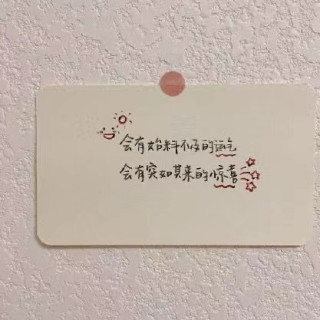 会有始料不及的运气
会有突如其来的惊喜